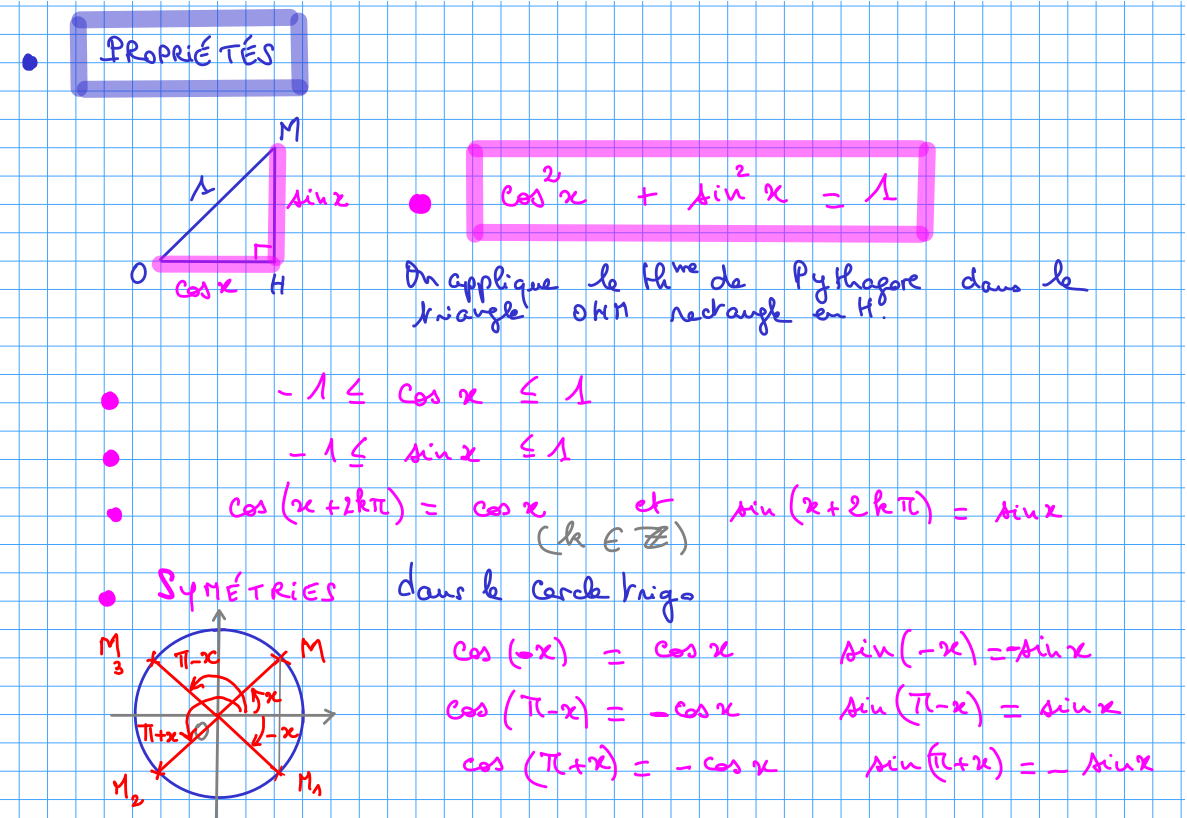 • PROPRIÉTÉS
M
1
sin x
O
cos x
H
• cos²x + sin²x = 1
On applique le thme de Pythagore dans le
triangle OHM rectangle en H.
• -1 ≤ cos x ≤ 1
• -1 ≤ sin x ≤ 1
• cos(x+2kπ) = cos x et sin(x+2kπ) = sin x
(k ∈ ℤ)
• SYMÉTRIES dans le cercle trigo
M3
π-x
M
x
π+x
O
-x
M2
M1
cos(-x) = cos x sin(-x) = -sin x
cos(π-x) = -cos x sin(π-x) = sin x
cos(π+x) = -cos x sin(π+x) = - sin x